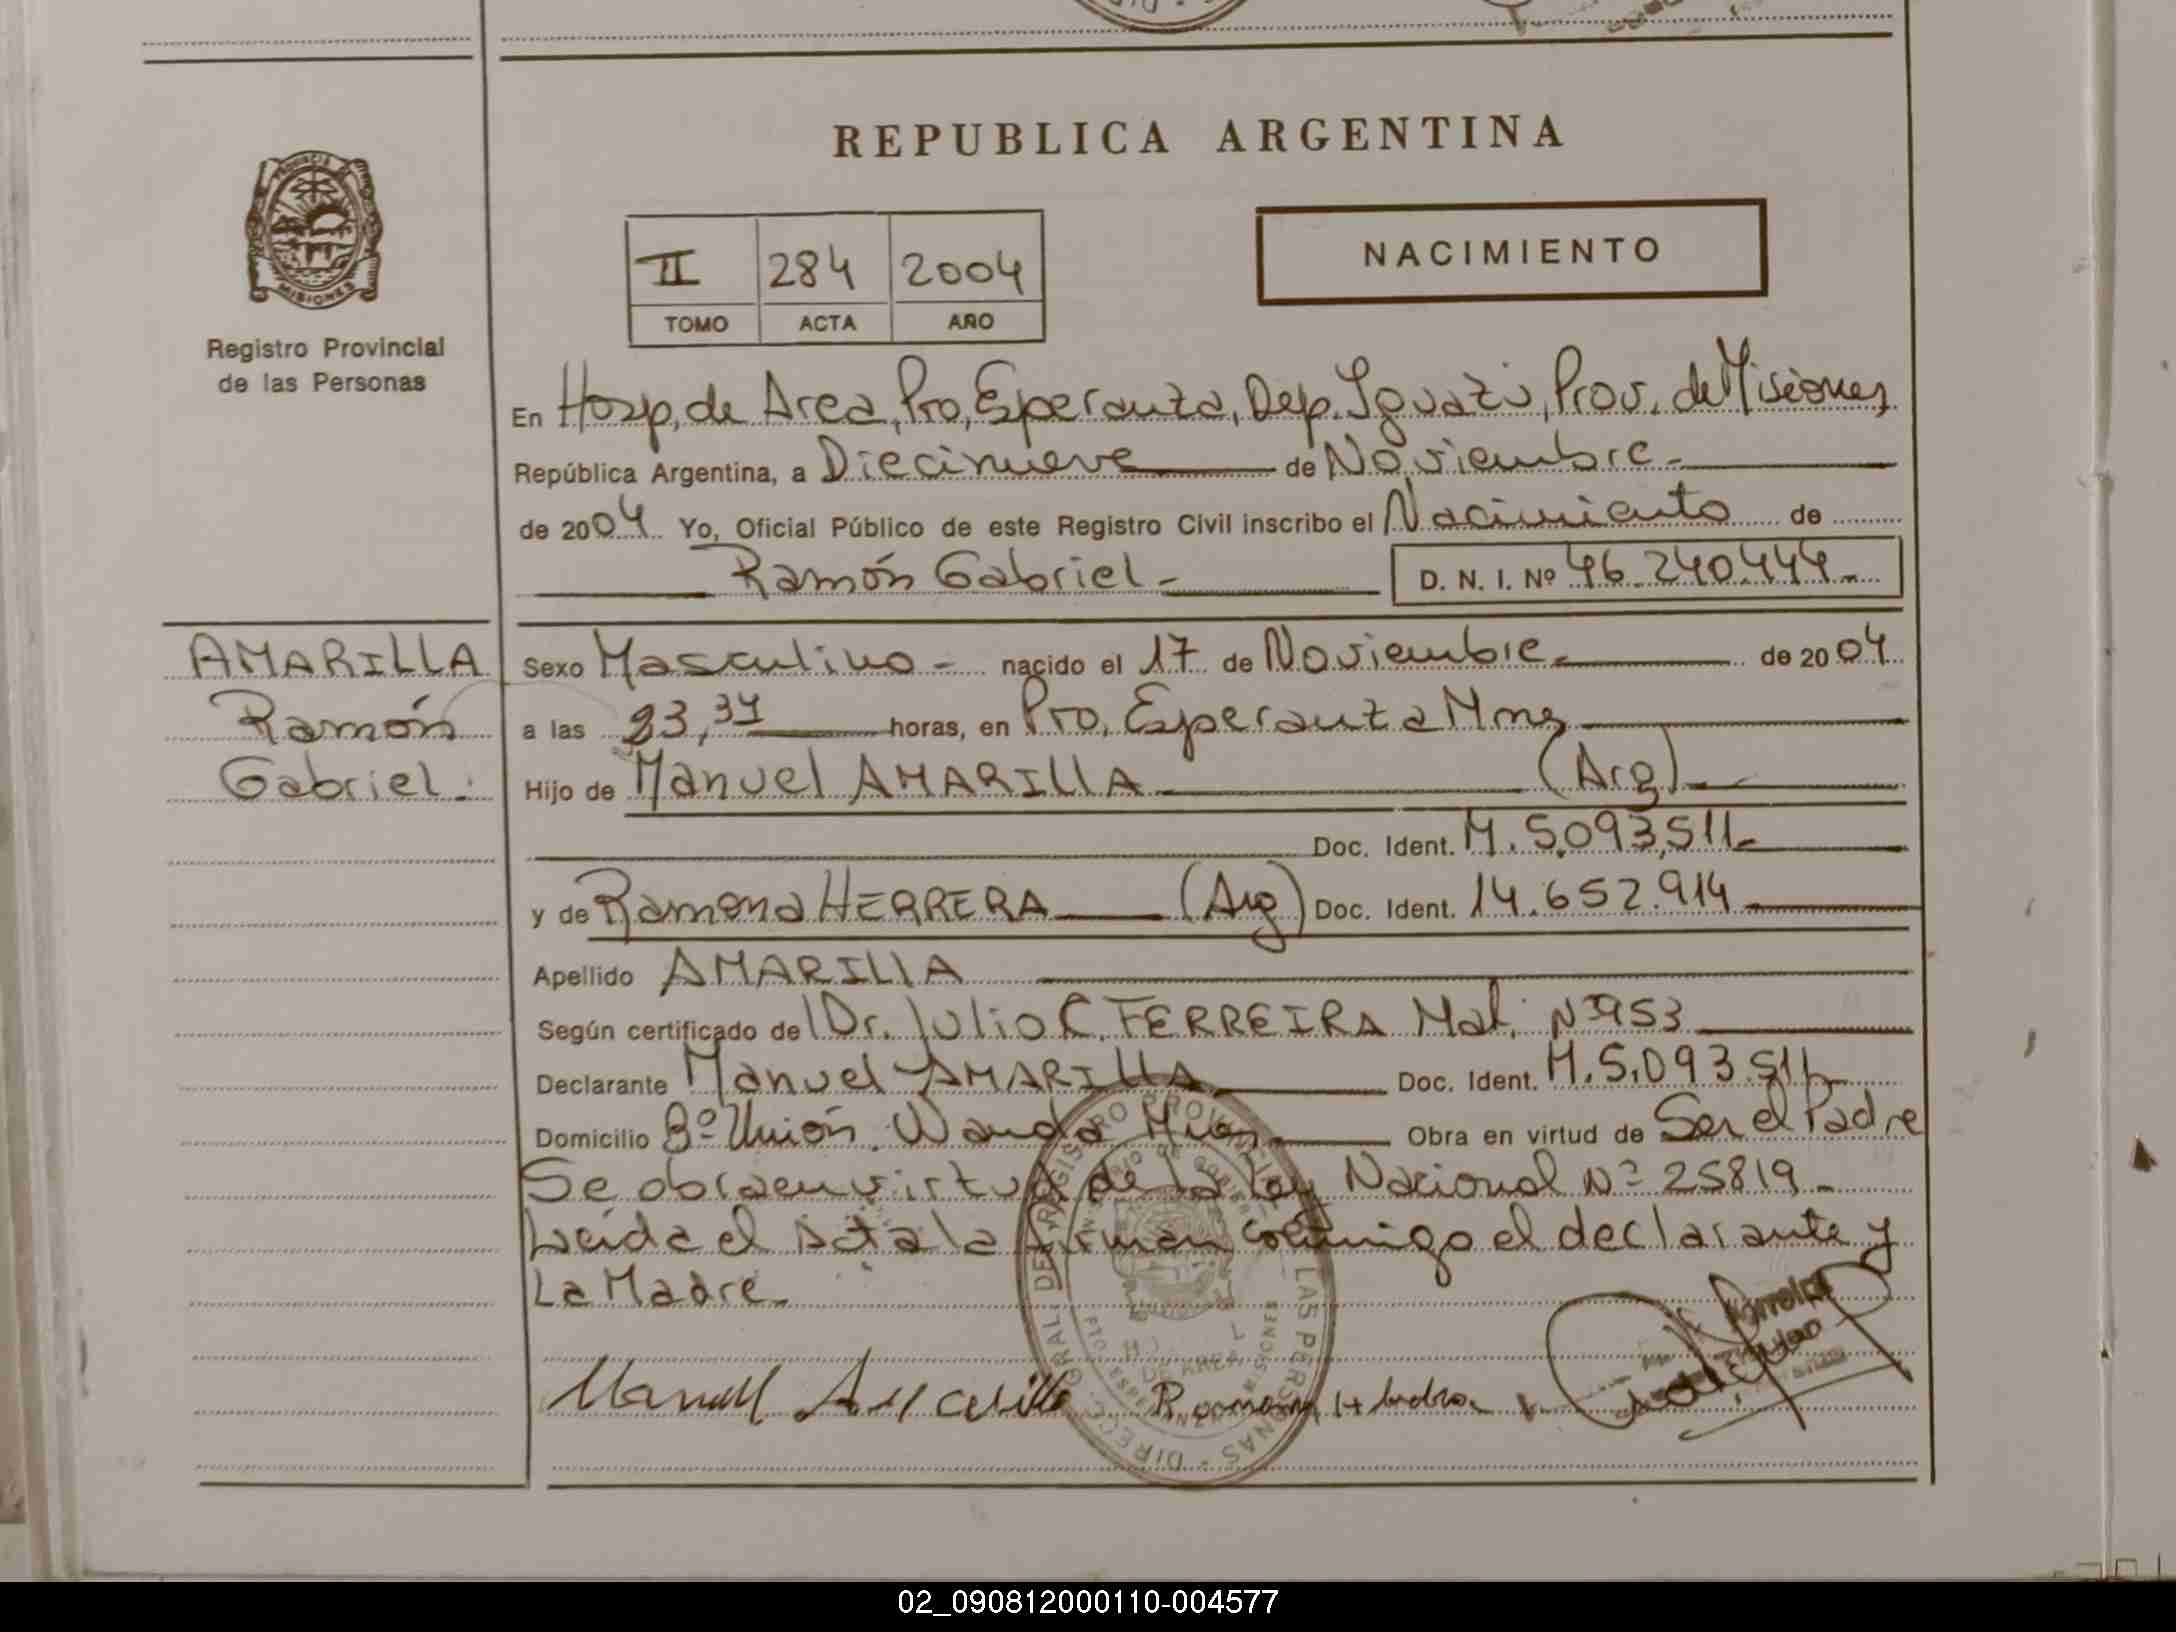 REPUBLICA ARGENTINA
PROVINCIA
MISIONES
Registro Provincial
de las Personas
II 284 2004
TOMO ACTA AÑO
NACIMIENTO
En Hosp, de Area, Pto, Esperanza, Dep. Iguazú, Prov. de Misiones
República Argentina, a Diecinueve de Noviembre.-
de 2004 Yo, Oficial Público de este Registro Civil inscribo el Nacimiento de
Ramón Gabriel.- D. N. I. Nº 46.240.444.-
AMARILLA
Ramón
Gabriel.
Sexo Masculino.- nacido el 17 de Noviembre.- de 2004
a las 23,34 horas, en Pto, Esperanza Mnes
Hijo de Manuel AMARILLA (Arg)
Doc. Ident. M. 5.093.511.-
y de Ramona HERRERA (Arg) Doc. Ident. 14.652.914
Apellido AMARILLA
Según certificado de Dr. Julio C. FERREIRA Mat. Nº 953
Declarante Manuel AMARILLA Doc. Ident. M.5.093.511.-
Domicilio Bº Unión. Wanda Obra en virtud de Ser el Padre
Se obra en virtud de la Ley Nacional Nº 25819.-
Leida el Acta la firman conmigo el declarante y
La Madre.
Manuel Amarilla Ramona
DIREC. GRAL. DE REGISTRO PROVINCIAL DE LAS PERSONAS
DE AREA
MISIONES
02_090812000110-004577